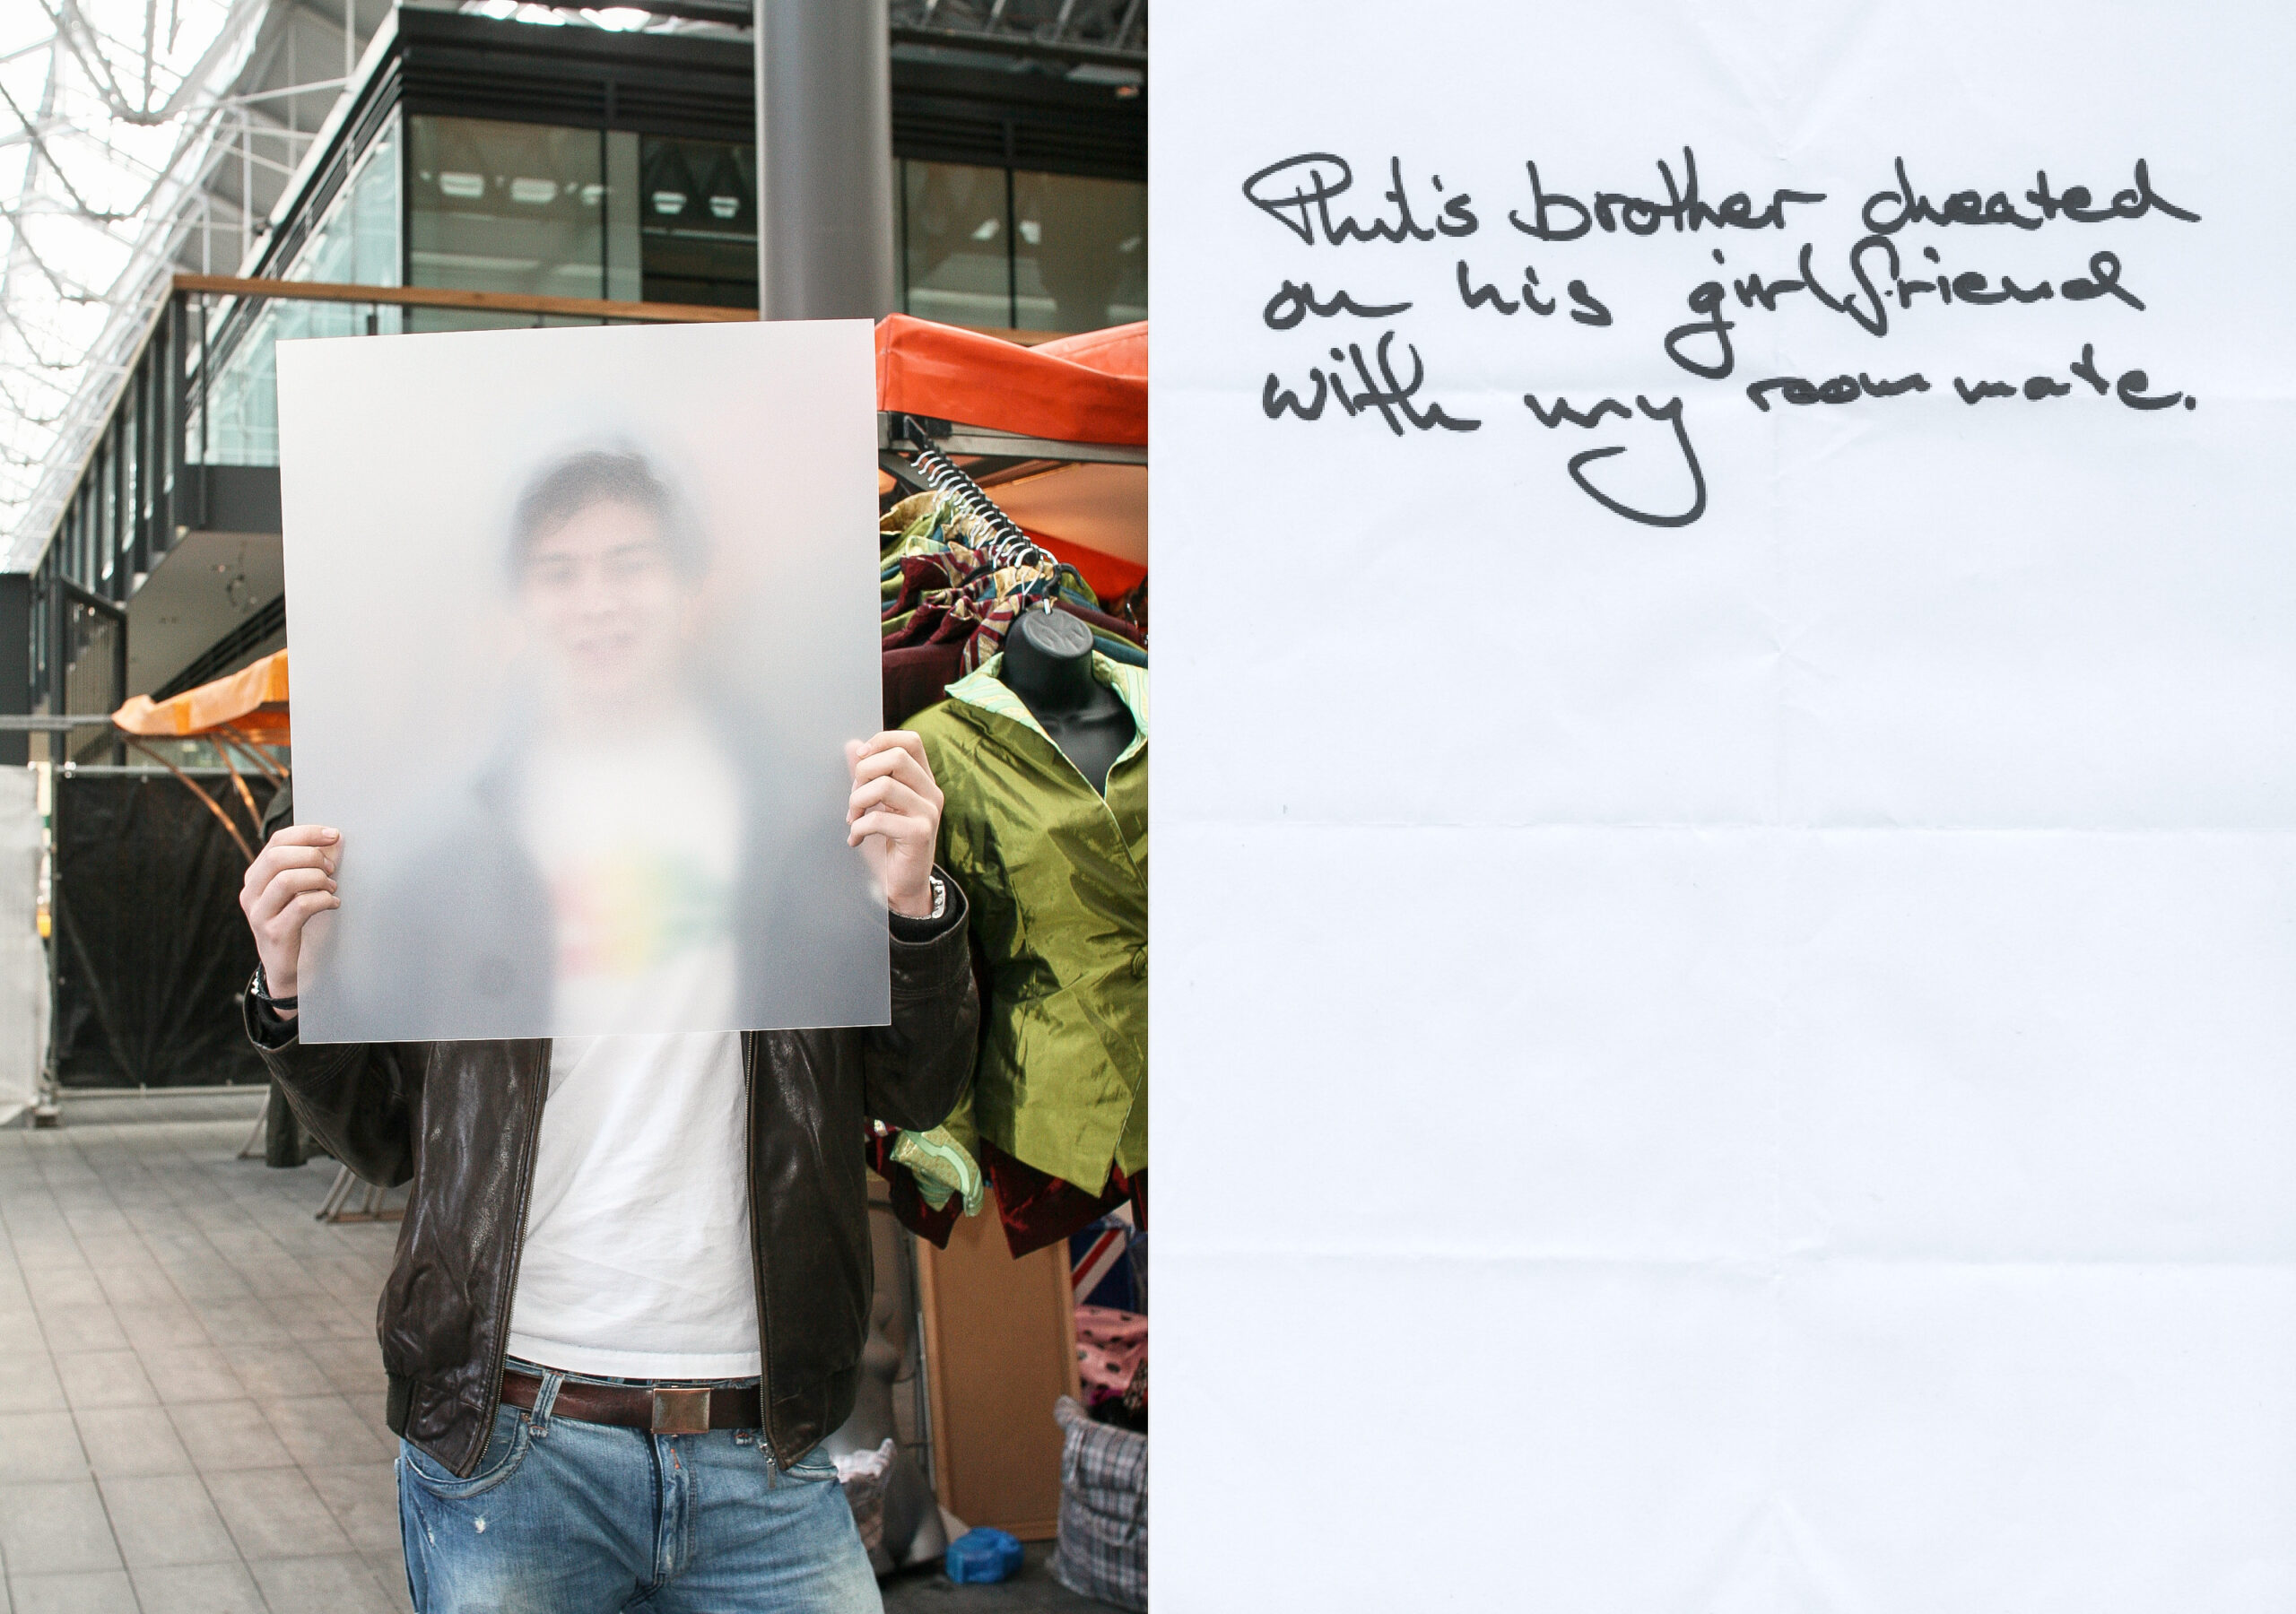 Phil's brother cheated
on his girlfriend
with my roommate.